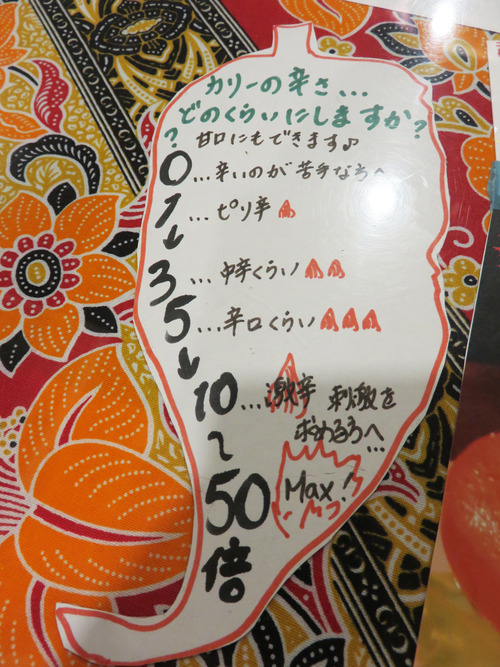 カリーの辛さ...
どのくらいにしますか?
? 甘口にもできます♪
0...辛いのが苦手な方へ
1...ピリ辛
↓
3...中辛くらい
5...辛口くらい
↓
10...激辛 刺激を
求める方へ...
〜
50 Max!
倍。